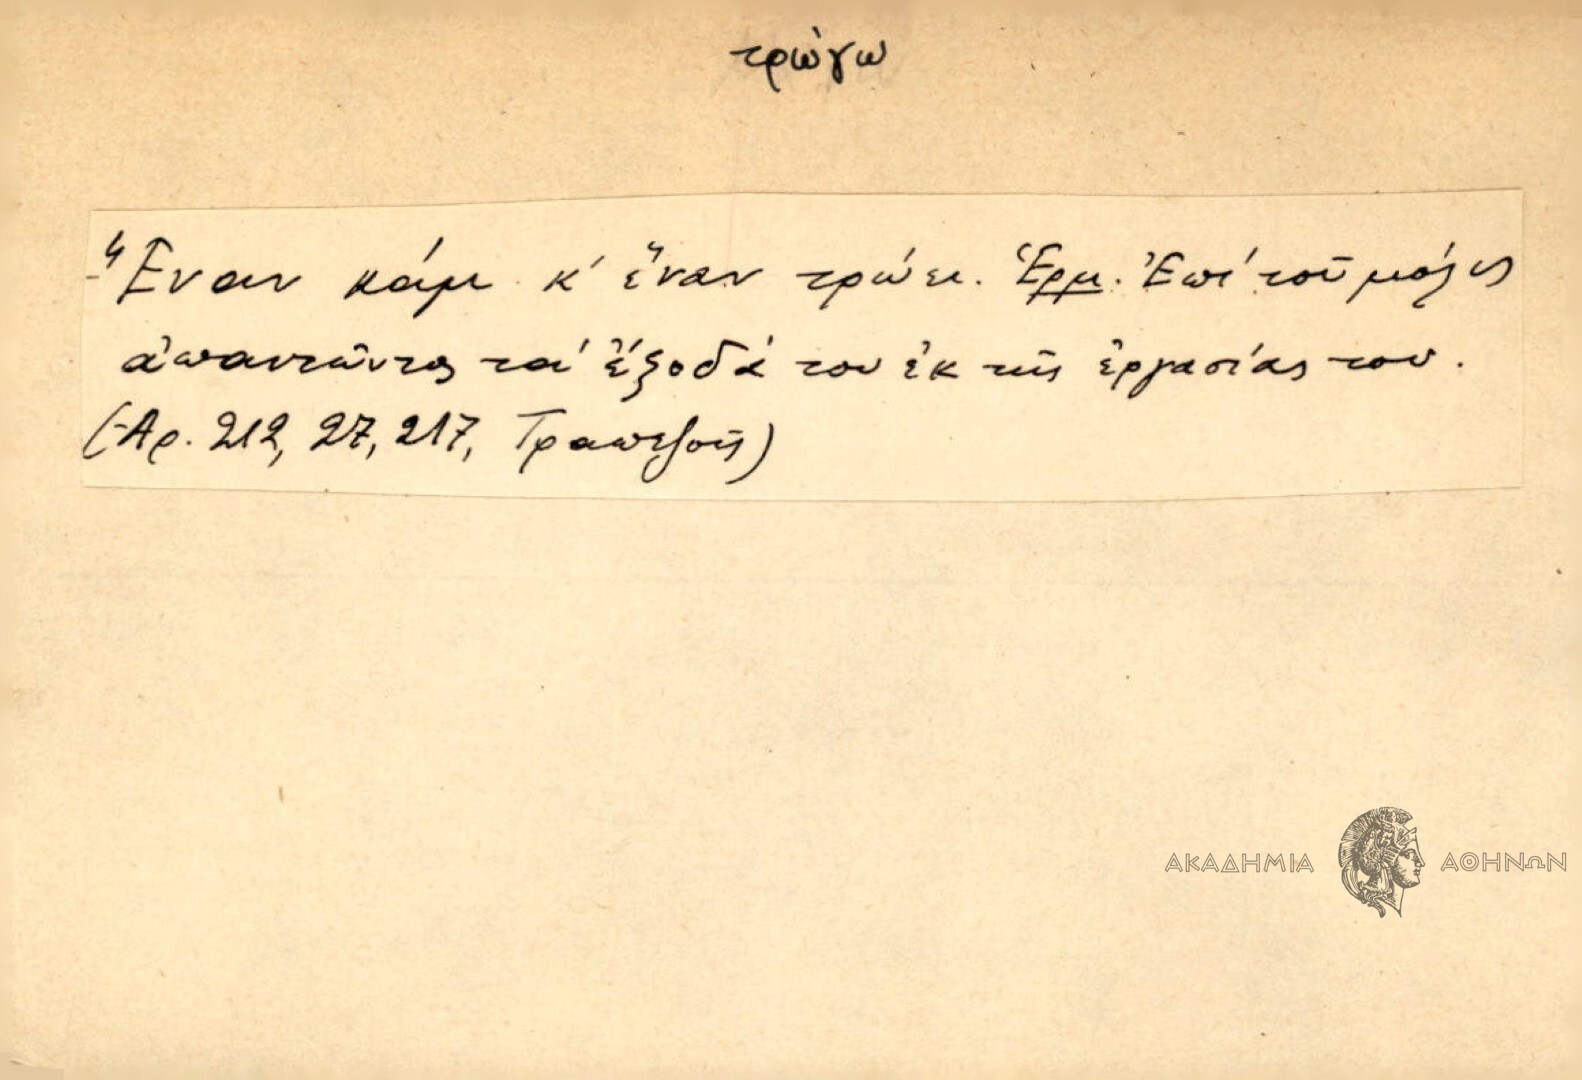 τρώγω
-Ἕναν κάμι κ' ἕναν τρώει. Ἑρμ. Ἐπὶ τοῦ μόλις
ἀπαντῶντος τὰ ἔξοδά του ἐκ τῆς ἐργασίας του.
(Ἀρ. 212, 27, 217, Τραπεζοῦς)
ΑΚΑΔΗΜΙΑ ΑΘΗΝΩΝ